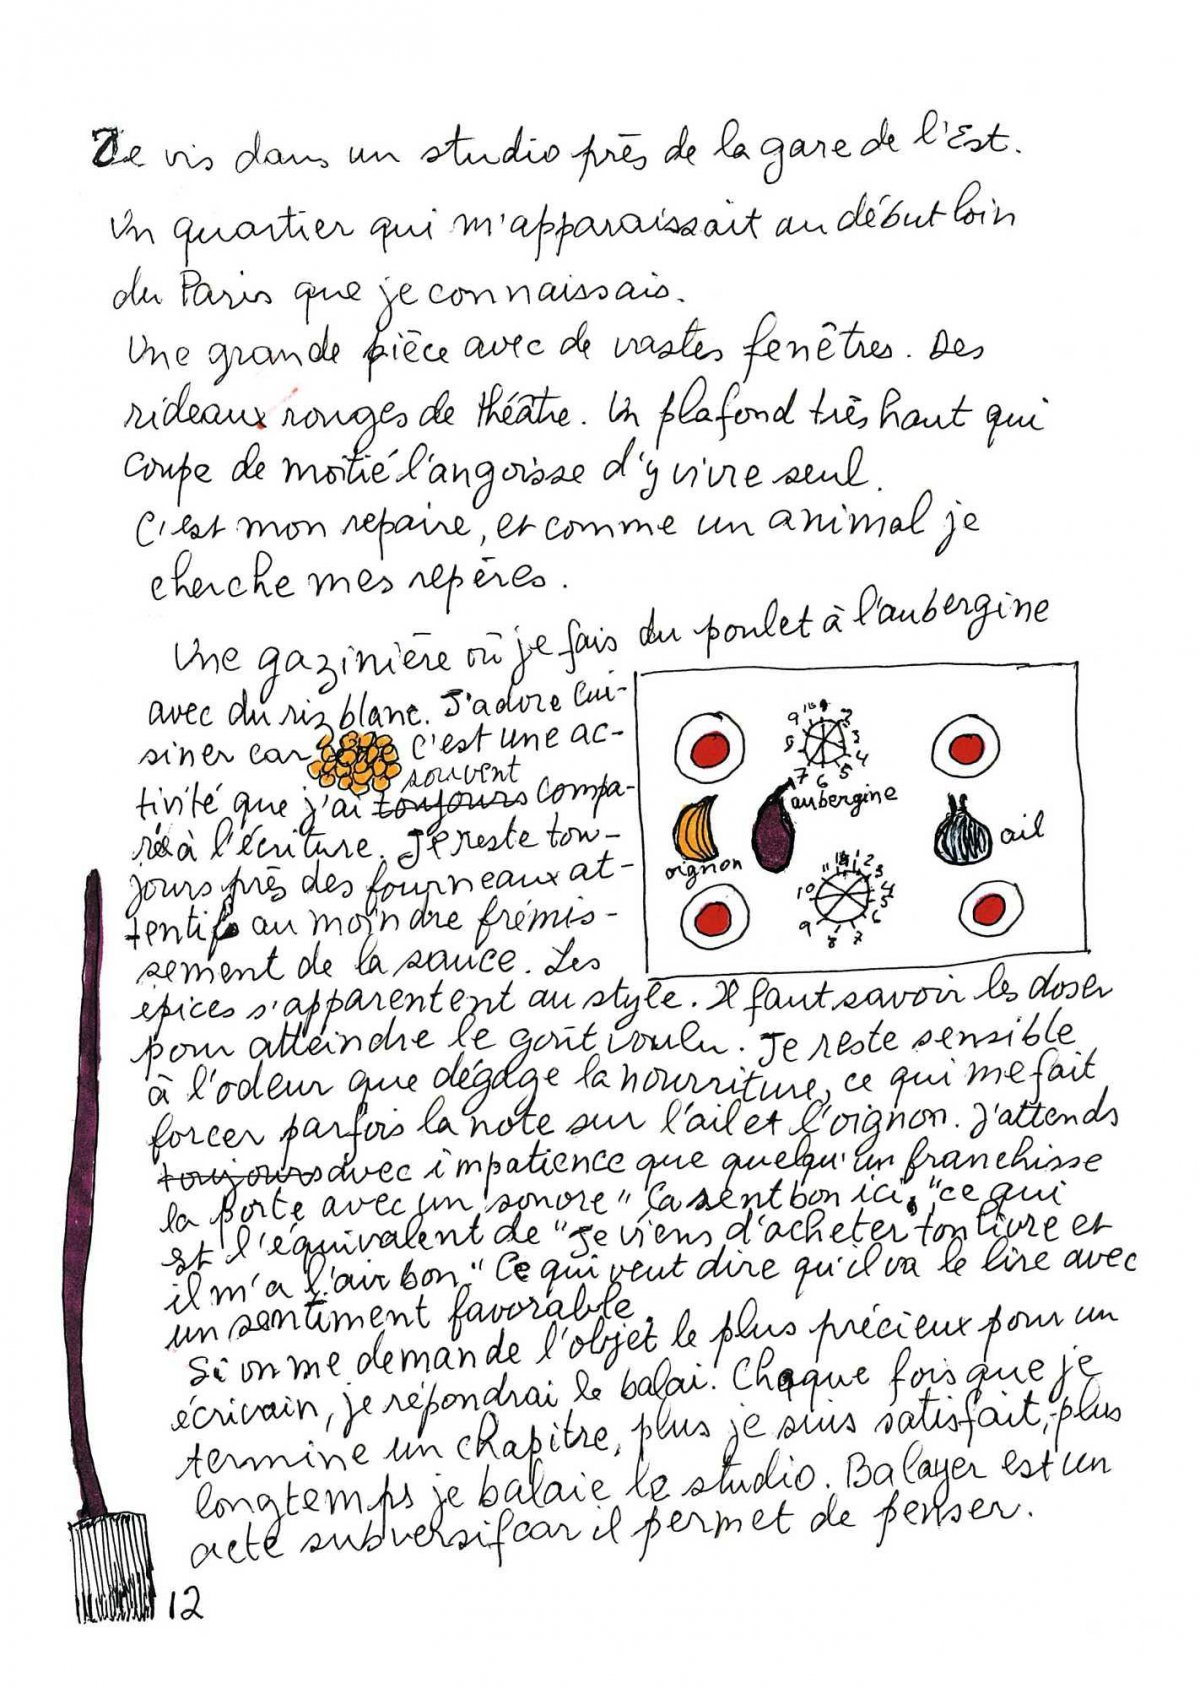 Je vis dans un studio près de la gare de l'Est.
Un quartier qui m'apparaissait au début loin
du Paris que je connaissais.
Une grande pièce avec de vastes fenêtres. Des
rideaux rouges de théâtre. Un plafond très haut qui
coupe de moitié l'angoisse d'y vivre seul.
C'est mon repaire, et comme un animal je
cherche mes repères.
Une gazinière où je fais du poulet à l'aubergine
avec du riz blanc. J'adore cui-
siner car c'est une ac-
souvent
tivité que j'ai toujours compa-
ré à l'écriture. Je reste tou-
jours près des fourneaux at-
tentif au moindre frémis-
sement de la sauce. Les
épices s'apparentent au style. Il faut savoir les doser
pour atteindre le goût voulu. Je reste sensible
à l'odeur que dégage la nourriture, ce qui me fait
forcer parfois la note sur l'ail et l'oignon. J'attends
toujours avec impatience que quelqu'un franchisse
la porte avec un sonore "Ça sent bon ici," ce qui
est l'équivalent de "Je viens d'acheter ton livre et
il m'a l'air bon." Ce qui veut dire qu'il va le lire avec
un sentiment favorable.
Si on me demande l'objet le plus précieux pour un
écrivain, je répondrai le balai. Chaque fois que je
termine un chapitre, plus je suis satisfait, plus
longtemps je balaie le studio. Balayer est un
acte subversif car il permet de penser.
12
9 3 4 5 6 7
aubergine
ail
oignon
11 12 1 2 3
10 4
9 5 6
8 7